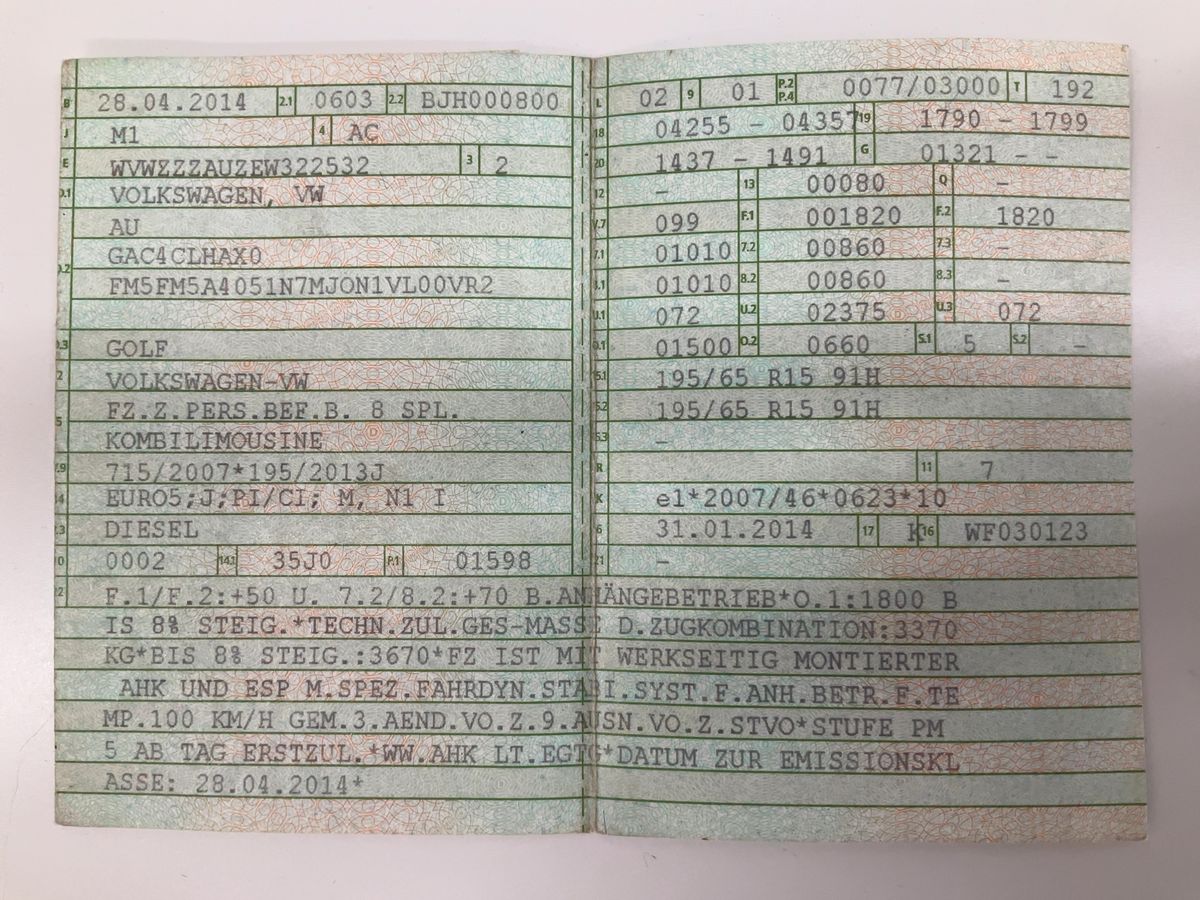 B 28.04.2014 2.1 0603 2.2 BJH000800
J M1 4 AC
E WVWZZZAUZEW322532 3 2
D.1 VOLKSWAGEN, VW
AU
D.2 GAC4CLHAX0
FM5FM5A4051N7MJON1VL00VR2
D.3 GOLF
2 VOLKSWAGEN-VW
5 FZ.Z.PERS.BEF.B. 8 SPL.
KOMBILIMOUSINE
V.9 715/2007*195/2013J
14 EURO5;J;PI/CI; M, N1 I
P.3 DIESEL
10 0002 14.1 35J0 P.1 01598
L 02 9 01 P.2 P.4 0077/03000 T 192
18 04255 - 04357 19 1790 - 1799
20 1437 - 1491 G 01321 - -
12 - 13 00080 Q -
V.7 099 F.1 001820 F.2 1820
7.1 01010 7.2 00860 7.3 -
8.1 01010 8.2 00860 8.3 -
U.1 072 U.2 02375 U.3 072
O.1 01500 O.2 0660 S.1 5 S.2 -
15.1 195/65 R15 91H
15.2 195/65 R15 91H
15.3 -
R 11 7
K e1*2007/46*0623*10
6 31.01.2014 17 K 16 WF030123
21 -
22 F.1/F.2:+50 U. 7.2/8.2:+70 B.ANHÄNGEBETRIEB*O.1:1800 B
IS 8% STEIG.*TECHN.ZUL.GES-MASSE D.ZUGKOMBINATION:3370
KG*BIS 8% STEIG.:3670*FZ IST MIT WERKSEITIG MONTIERTER
AHK UND ESP M.SPEZ.FAHRDYN.STABI.SYST.F.ANH.BETR.F.TE
MP.100 KM/H GEM.3.AEND.VO.Z.9.AUSN.VO.Z.STVO*STUFE PM
5 AB TAG ERSTZUL.*WW.AHK LT.EGTG*DATUM ZUR EMISSIONSKL
ASSE: 28.04.2014*